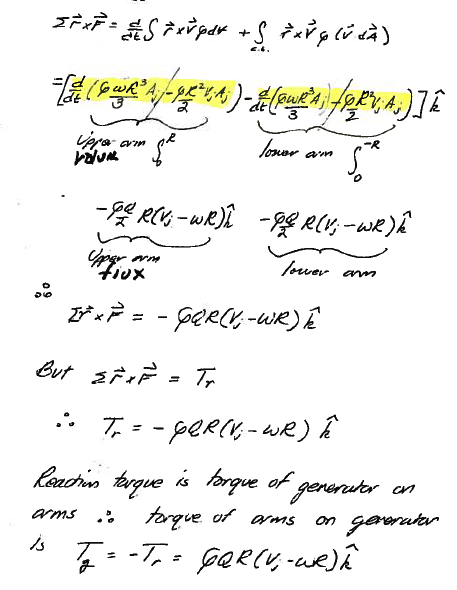 Σr⃗×F⃗ = d/dt ∫ r⃗×V⃗ρd∀ + ∫c.s. r⃗×V⃗ρ(V⃗·dA⃗)
=[d/dt(ρωR³A_j/3 - ρR²V_jA_j/2) - d/dt(ρωR³A_j/3 - ρR²V_jA_j/2)]k̂
upper arm volume ∫₀^R lower arm ∫₀^-R
-ρQ/2 R(V_j-ωR)k̂ -ρQ/2 R(V_j-ωR)k̂
Upper arm flux lower arm
∴
Σr⃗×F⃗ = -ρQR(V_j-ωR)k̂
But Σr⃗×F⃗ = T_r
∴ T_r = -ρQR(V_j-ωR) k̂
Reaction torque is torque of generator on
arms ∴ torque of arms on generator
is T_g = -T_r = ρQR(V_j-ωR)k̂